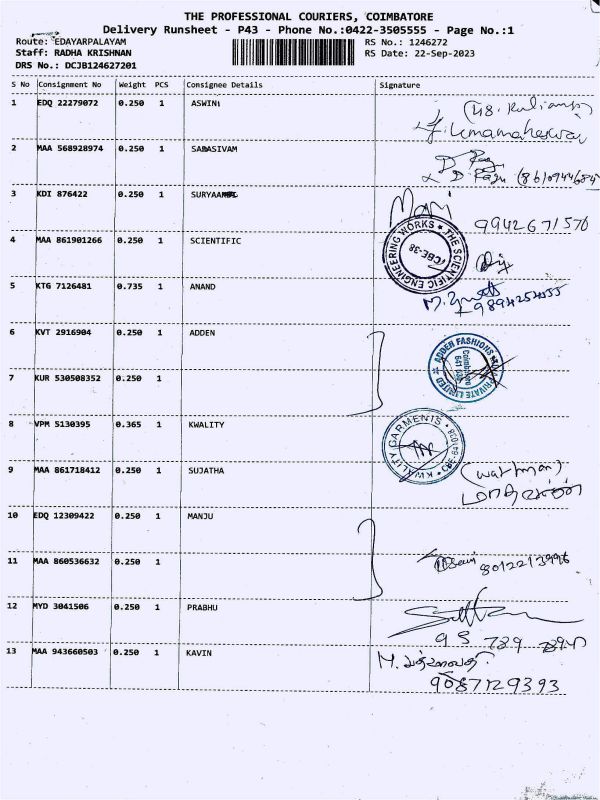 THE PROFESSIONAL COURIERS, COIMBATORE
Delivery Runsheet - P43 - Phone No.:0422-3505555 - Page No.:1
Route: EDAYARPALAYAM
RS No.: 1246272
Staff: RADHA KRISHNAN
RS Date: 22-Sep-2023
DRS No.: DCJB124627201
S No Consignment No Weight PCS Consignee Details Signature
1 EDQ 22279072 0.250 1 ASWIN
Umamaheswari
2 MAA 568928974 0.250 1 SADASIVAM
3 KDI 876422 0.250 1 SURYA
Mani
9942671570
4 MAA 861901266 0.250 1 SCIENTIFIC
THE SCIENTIFIC ENGINEERING WORKS CBE-38
5 KTG 7126481 0.735 1 ANAND
6 KVT 2916904 0.250 1 ADDEN
ADDEN FASHIONS PRIVATE LIMITED Coimbatore
7 KUR 530508352 0.250 1
8 VPM 5130395 0.365 1 KWALITY
KWALITY GARMENTS
9 MAA 861718412 0.250 1 SUJATHA
10 EDQ 12309422 0.250 1 MANJU
11 MAA 860536632 0.250 1
8012213996
12 MYD 3041506 0.250 1 PRABHU
13 MAA 943660503 0.250 1 KAVIN
9087129393